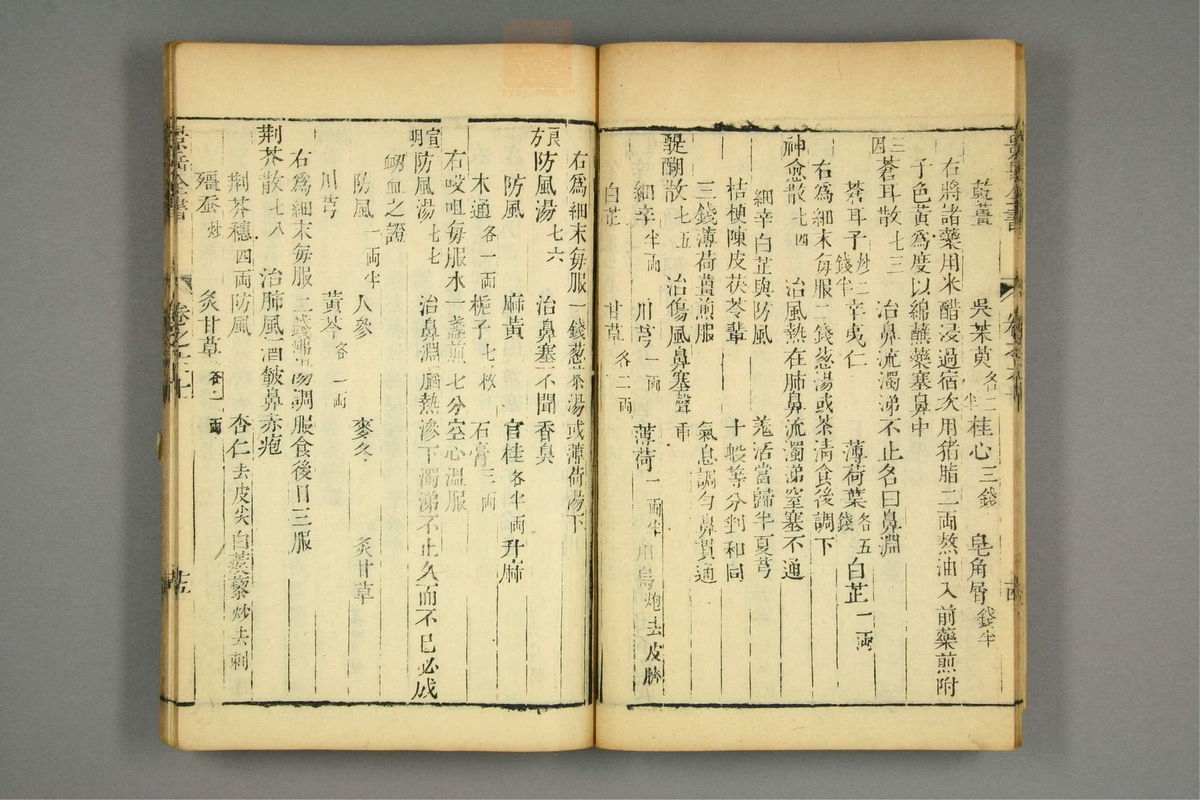 乾薑　吳茱萸各二　桂心三錢　皂角屑錢半
右將諸藥用米醋浸過宿次用猪脂二両熬油入前藥煎附
子色黃爲度以綿蘸藥塞鼻中
三因蒼耳散七三　治鼻流濁涕不止名曰鼻淵
蒼耳子炒二錢半　辛夷仁　薄荷葉各五錢　白芷一両
右為細末每服二錢葱湯或茶清食後調下
神愈散七四　治風熱在肺鼻流濁涕窒塞不通
細辛白芷與防風　羗活當歸半夏芎
桔梗陳皮茯苓輩　十般等分剉和同
三錢薄荷薑煎服　氣息調勻鼻貫通
醍醐散七五　治傷風鼻塞聲重
細辛半両　川芎一両　薄荷一両半　川烏炮去皮臍
白芷　甘草各二両
右爲細末每服一錢葱茶湯或薄荷湯下
良方防風湯七六　治鼻塞不聞香臭
防風　麻黃　官桂各半両　升麻
木通各一両　梔子七枚　石膏三両
右㕮咀每服水一盞煎七分空心温服
宣明防風湯七七　治鼻淵腦熱滲下濁涕不止久而不已必成
衂血之證
防風一両半　人參　麥冬　炙甘草
川芎　黃芩各一両
右爲細末每服二錢沸湯調服食後日三服
荆芥散七八　治肺風酒皶鼻赤疱
荆芥穗四両　防風　杏仁去皮尖　白蒺藜炒去刺
殭蚕炒　炙甘草各一両
景岳全書
卷之六十